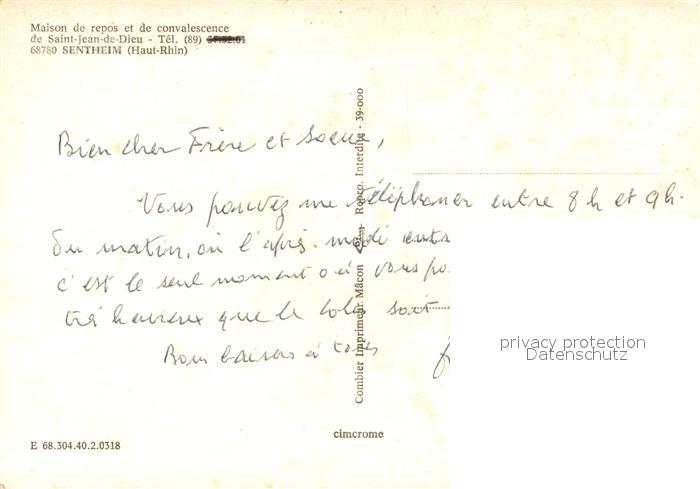 Maison de repos et de convalescence
de Saint-Jean-de-Dieu - Tél. (89)
68780 SENTHEIM (Haut-Rhin)
Bien cher Frère et Soeur,
Vous pouvez me téléphoner entre 8 h et 9h.
du matin, ou l'après-midi entr
c'est le seul moment où vous po
très heureux que le colis soit
Bons baisers à tous
Combier Imprimeur Mâcon Repro. Interdite - 39-000
privacy protection
Datenschutz
cimcrome
E 68.304.40.2.0318